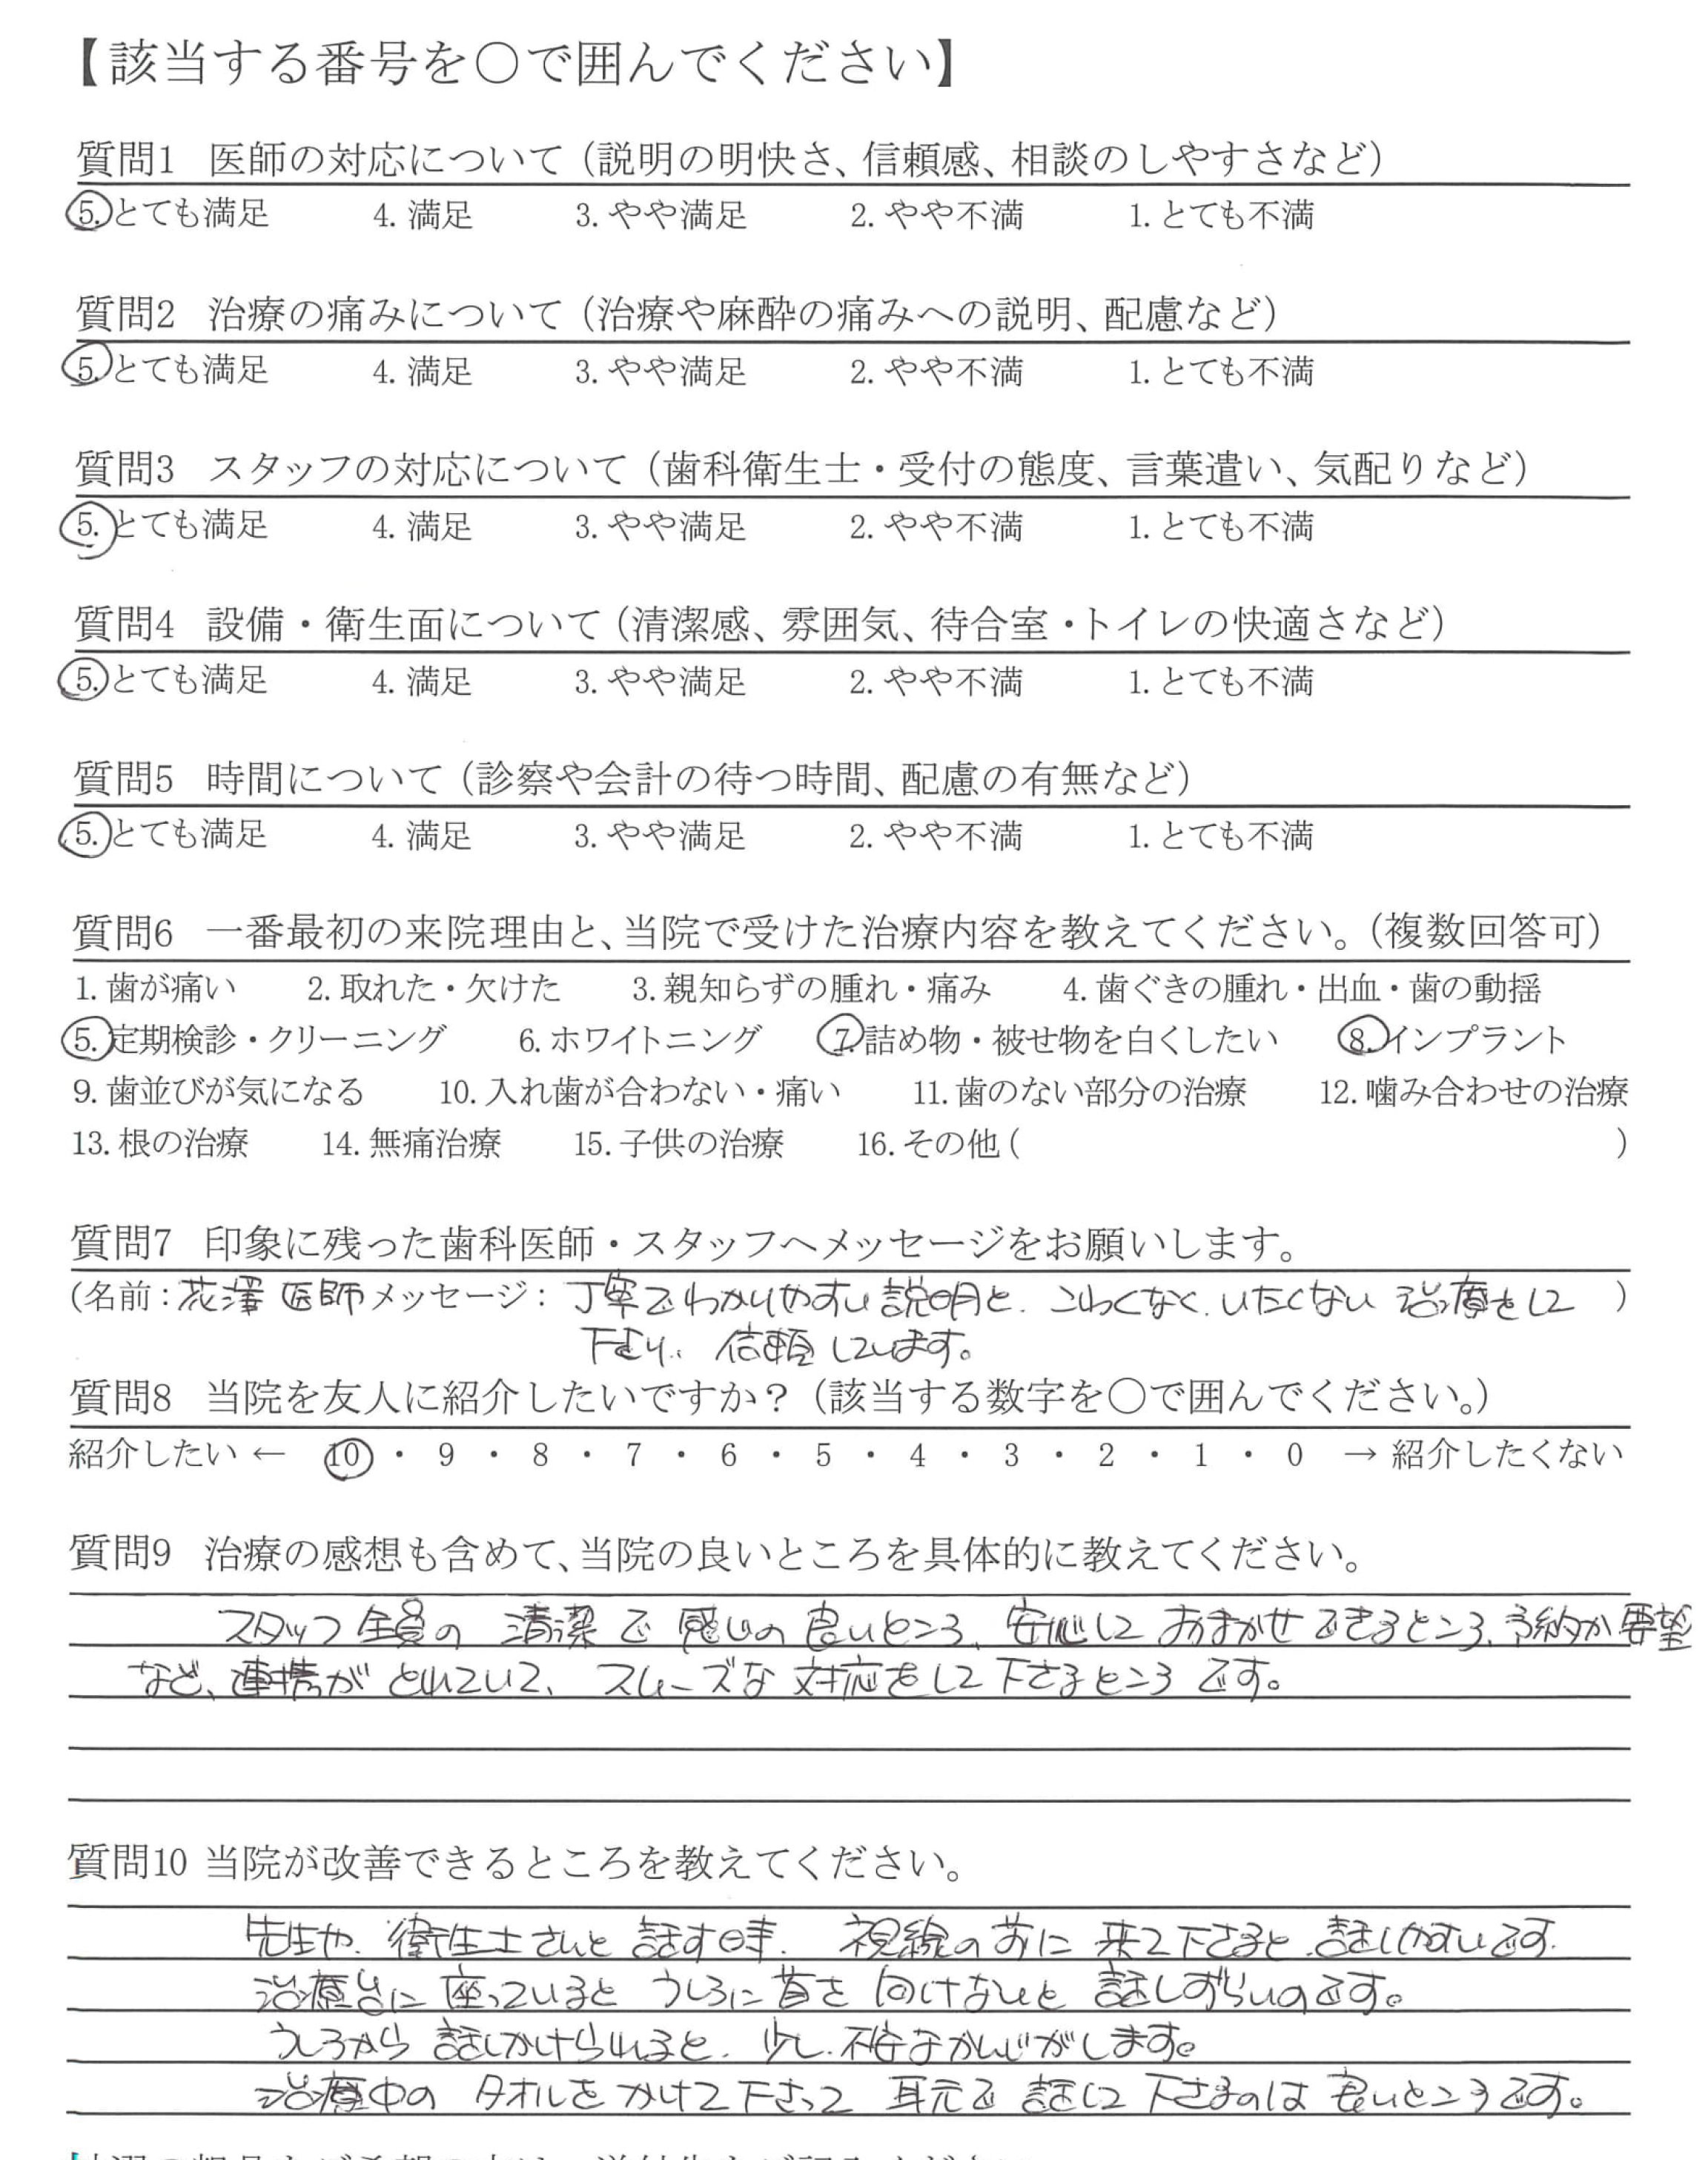 【該当する番号を○で囲んでください】
質問1 医師の対応について（説明の明快さ、信頼感、相談のしやすさなど）
5.とても満足 4.満足 3.やや満足 2.やや不満 1.とても不満
質問2 治療の痛みについて（治療や麻酔の痛みへの説明、配慮など）
5.とても満足 4.満足 3.やや満足 2.やや不満 1.とても不満
質問3 スタッフの対応について（歯科衛生士・受付の態度、言葉遣い、気配りなど）
5.とても満足 4.満足 3.やや満足 2.やや不満 1.とても不満
質問4 設備・衛生面について（清潔感、雰囲気、待合室・トイレの快適さなど）
5.とても満足 4.満足 3.やや満足 2.やや不満 1.とても不満
質問5 時間について（診察や会計の待つ時間、配慮の有無など）
5.とても満足 4.満足 3.やや満足 2.やや不満 1.とても不満
質問6 一番最初の来院理由と、当院で受けた治療内容を教えてください。（複数回答可）
1.歯が痛い 2.取れた・欠けた 3.親知らずの腫れ・痛み 4.歯ぐきの腫れ・出血・歯の動揺
5.定期検診・クリーニング 6.ホワイトニング 7.詰め物・被せ物を白くしたい 8.インプラント
9.歯並びが気になる 10.入れ歯が合わない・痛い 11.歯のない部分の治療 12.噛み合わせの治療
13.根の治療 14.無痛治療 15.子供の治療 16.その他（ ）
質問7 印象に残った歯科医師・スタッフへメッセージをお願いします。
（名前：花澤 医師 メッセージ： 丁寧でわかりやすい説明と、こわくなく、いたくない 治療をして ）
下さり、信頼しています。
質問8 当院を友人に紹介したいですか？（該当する数字を○で囲んでください。）
紹介したい ← 10 ・ 9 ・ 8 ・ 7 ・ 6 ・ 5 ・ 4 ・ 3 ・ 2 ・ 1 ・ 0 → 紹介したくない
質問9 治療の感想も含めて、当院の良いところを具体的に教えてください。
スタッフ全員の 清潔で 感じの良いところ、安心して おまかせできるところ、予約か要望
など、連携が とれていて、スムーズな 対応をして下さるところです。
質問10 当院が改善できるところを教えてください。
先生や、衛生士さんと 話す時、視線の前に 来て下さると、話しやすいです。
治療台に 座っていると うしろに 首を 向けないと 話しずらいのです。
うしろから 話しかけられると、少し、不安なかんじがします。
治療中の タオルを かけて下さって 耳元で 話して 下さるのは 良いところです。